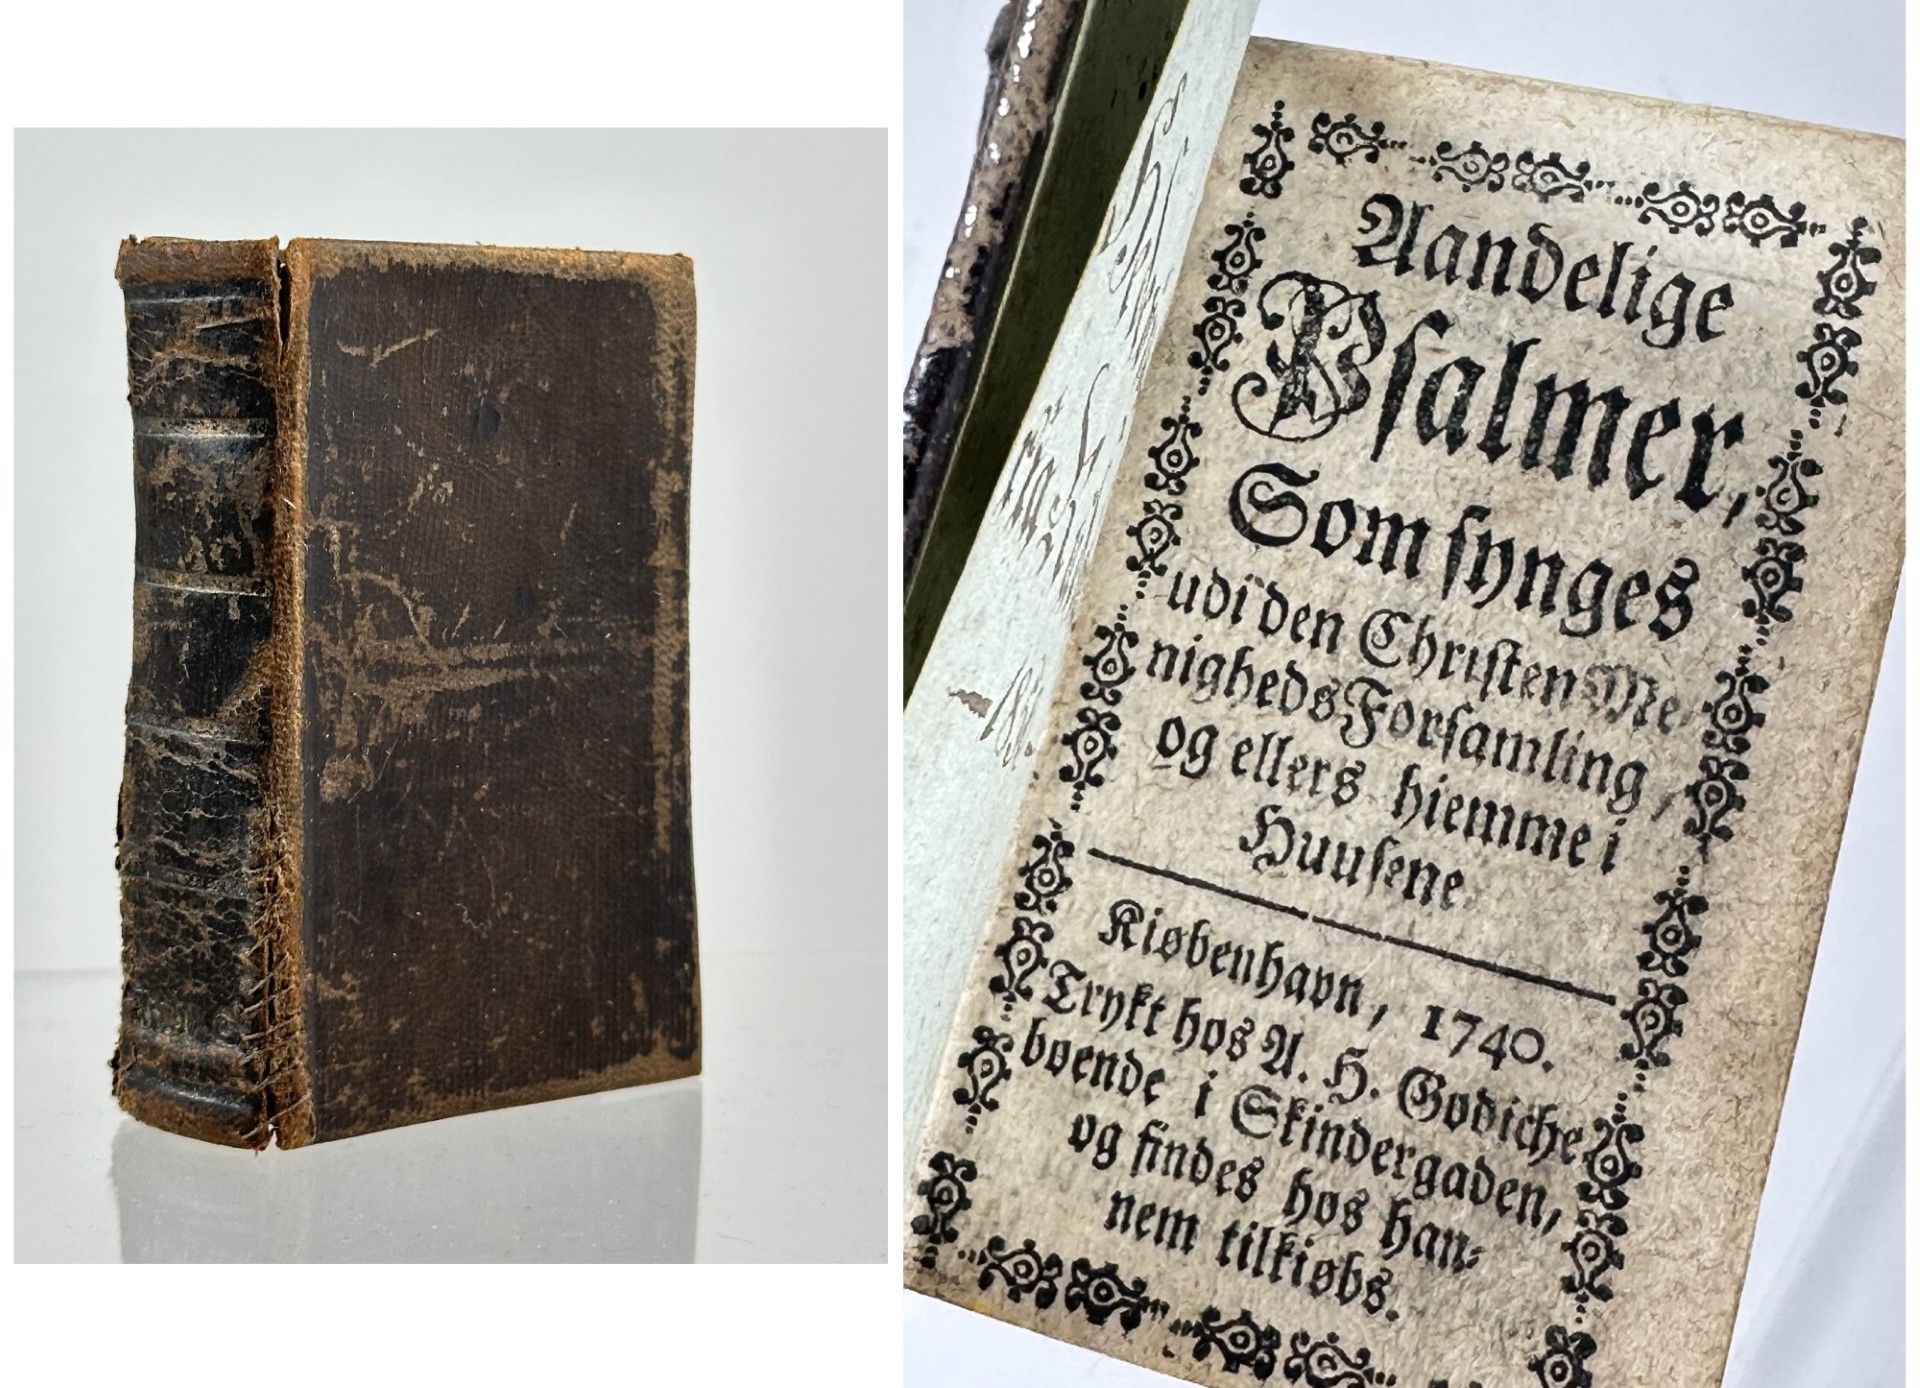 Aandelige
Psalmer,
Som synges
udi den Christen Me-
nigheds Forsamling,
og ellers hiemme i
Huusene.
Kiøbenhavn, 1740.
Trykt hos A. H. Godiche
boende i Skindergaden,
og findes hos han-
nem tilkiøbs.